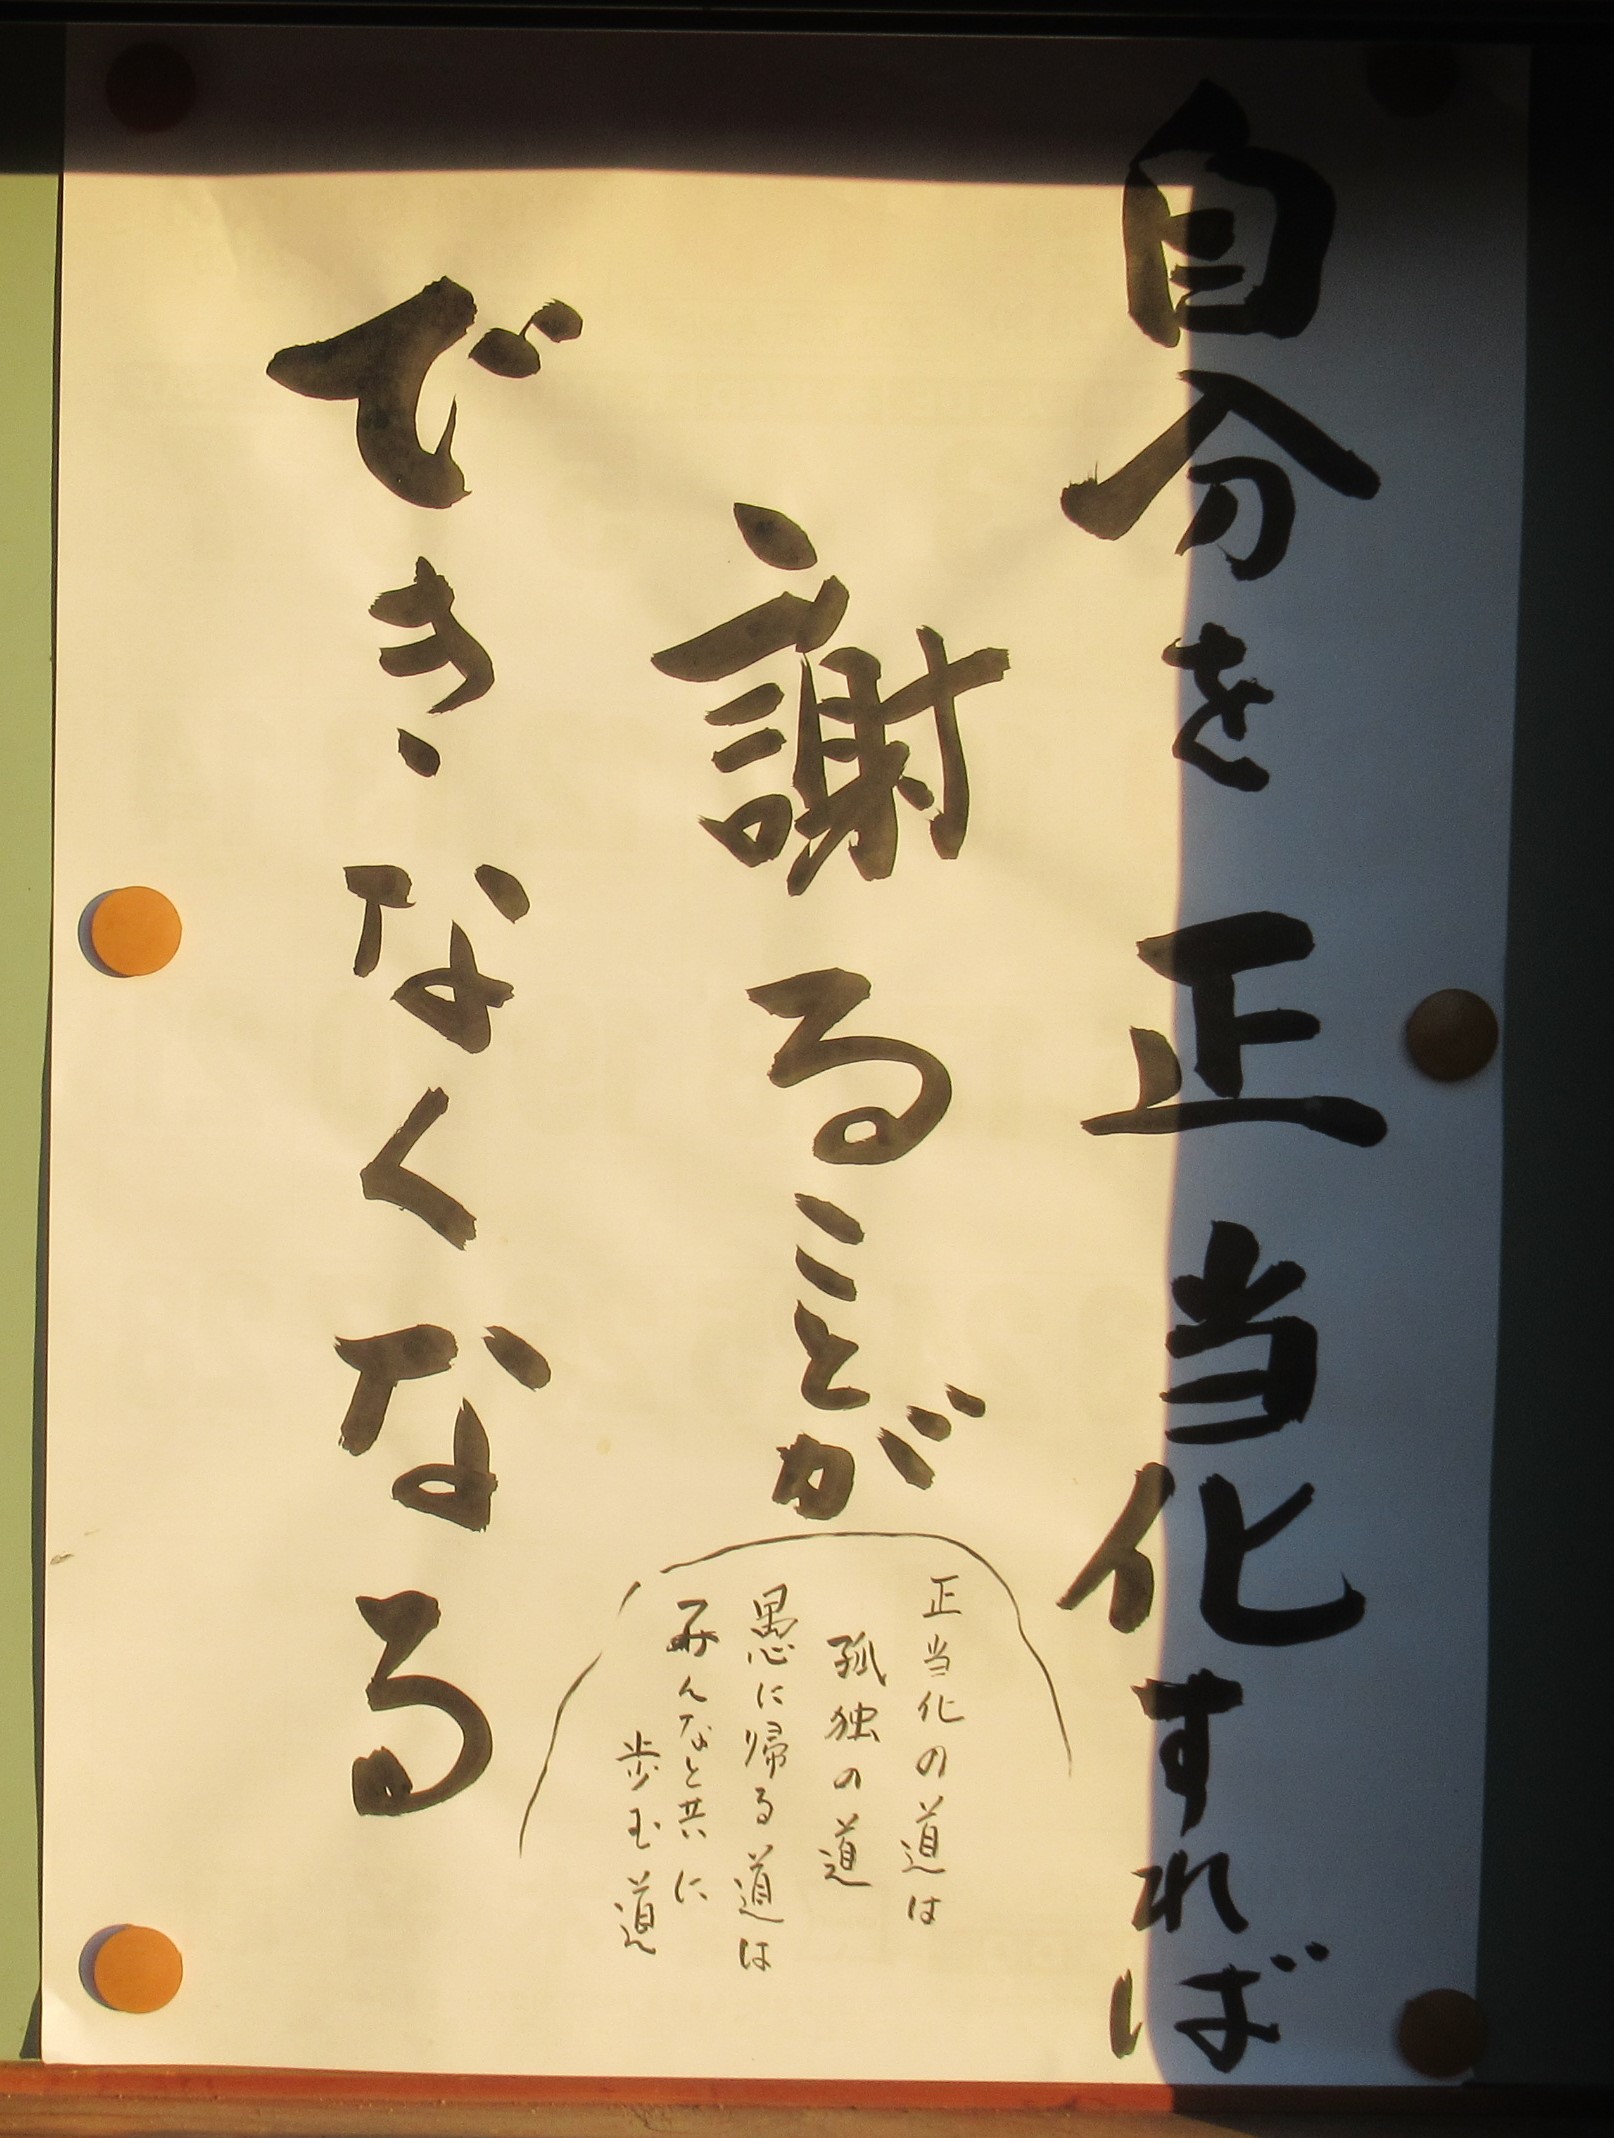 自分を正当化すれば
謝ることが
できなくなる
正当化の道は
孤独の道
愚に帰る道は
みんなと共に
歩む道